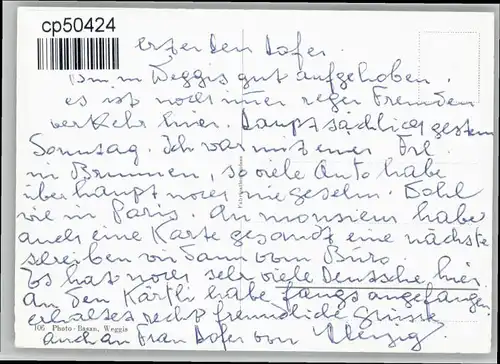 cp50424
in Weggis gut aufgehoben.
es ist noch imer reger Fremden
verkehr hier. Hauptsächlich gestern
Sonntag. Ich war mit einer Frl.
in Brunnen, so viele Auto habe
überhaupt noch nie gesehn. Wohl
wie in Paris. An monsieur habe
auch eine Karte gesandt eine nächste
schreiben wir dann vom Büro.
Es hat noch sehr viele Deutsche hier.
An den Kärtli habe angefangen
erhaltet recht freundliche Grüsse
106 Photo-Basan, Weggis
auch an Frau von